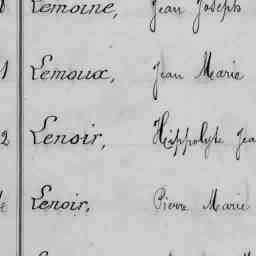 Lemoine, Jean Joseph
1 Lemoux, Jean Marie
2 Lenoir, Hippolyte Jea
Lenoir, Pierre Marie